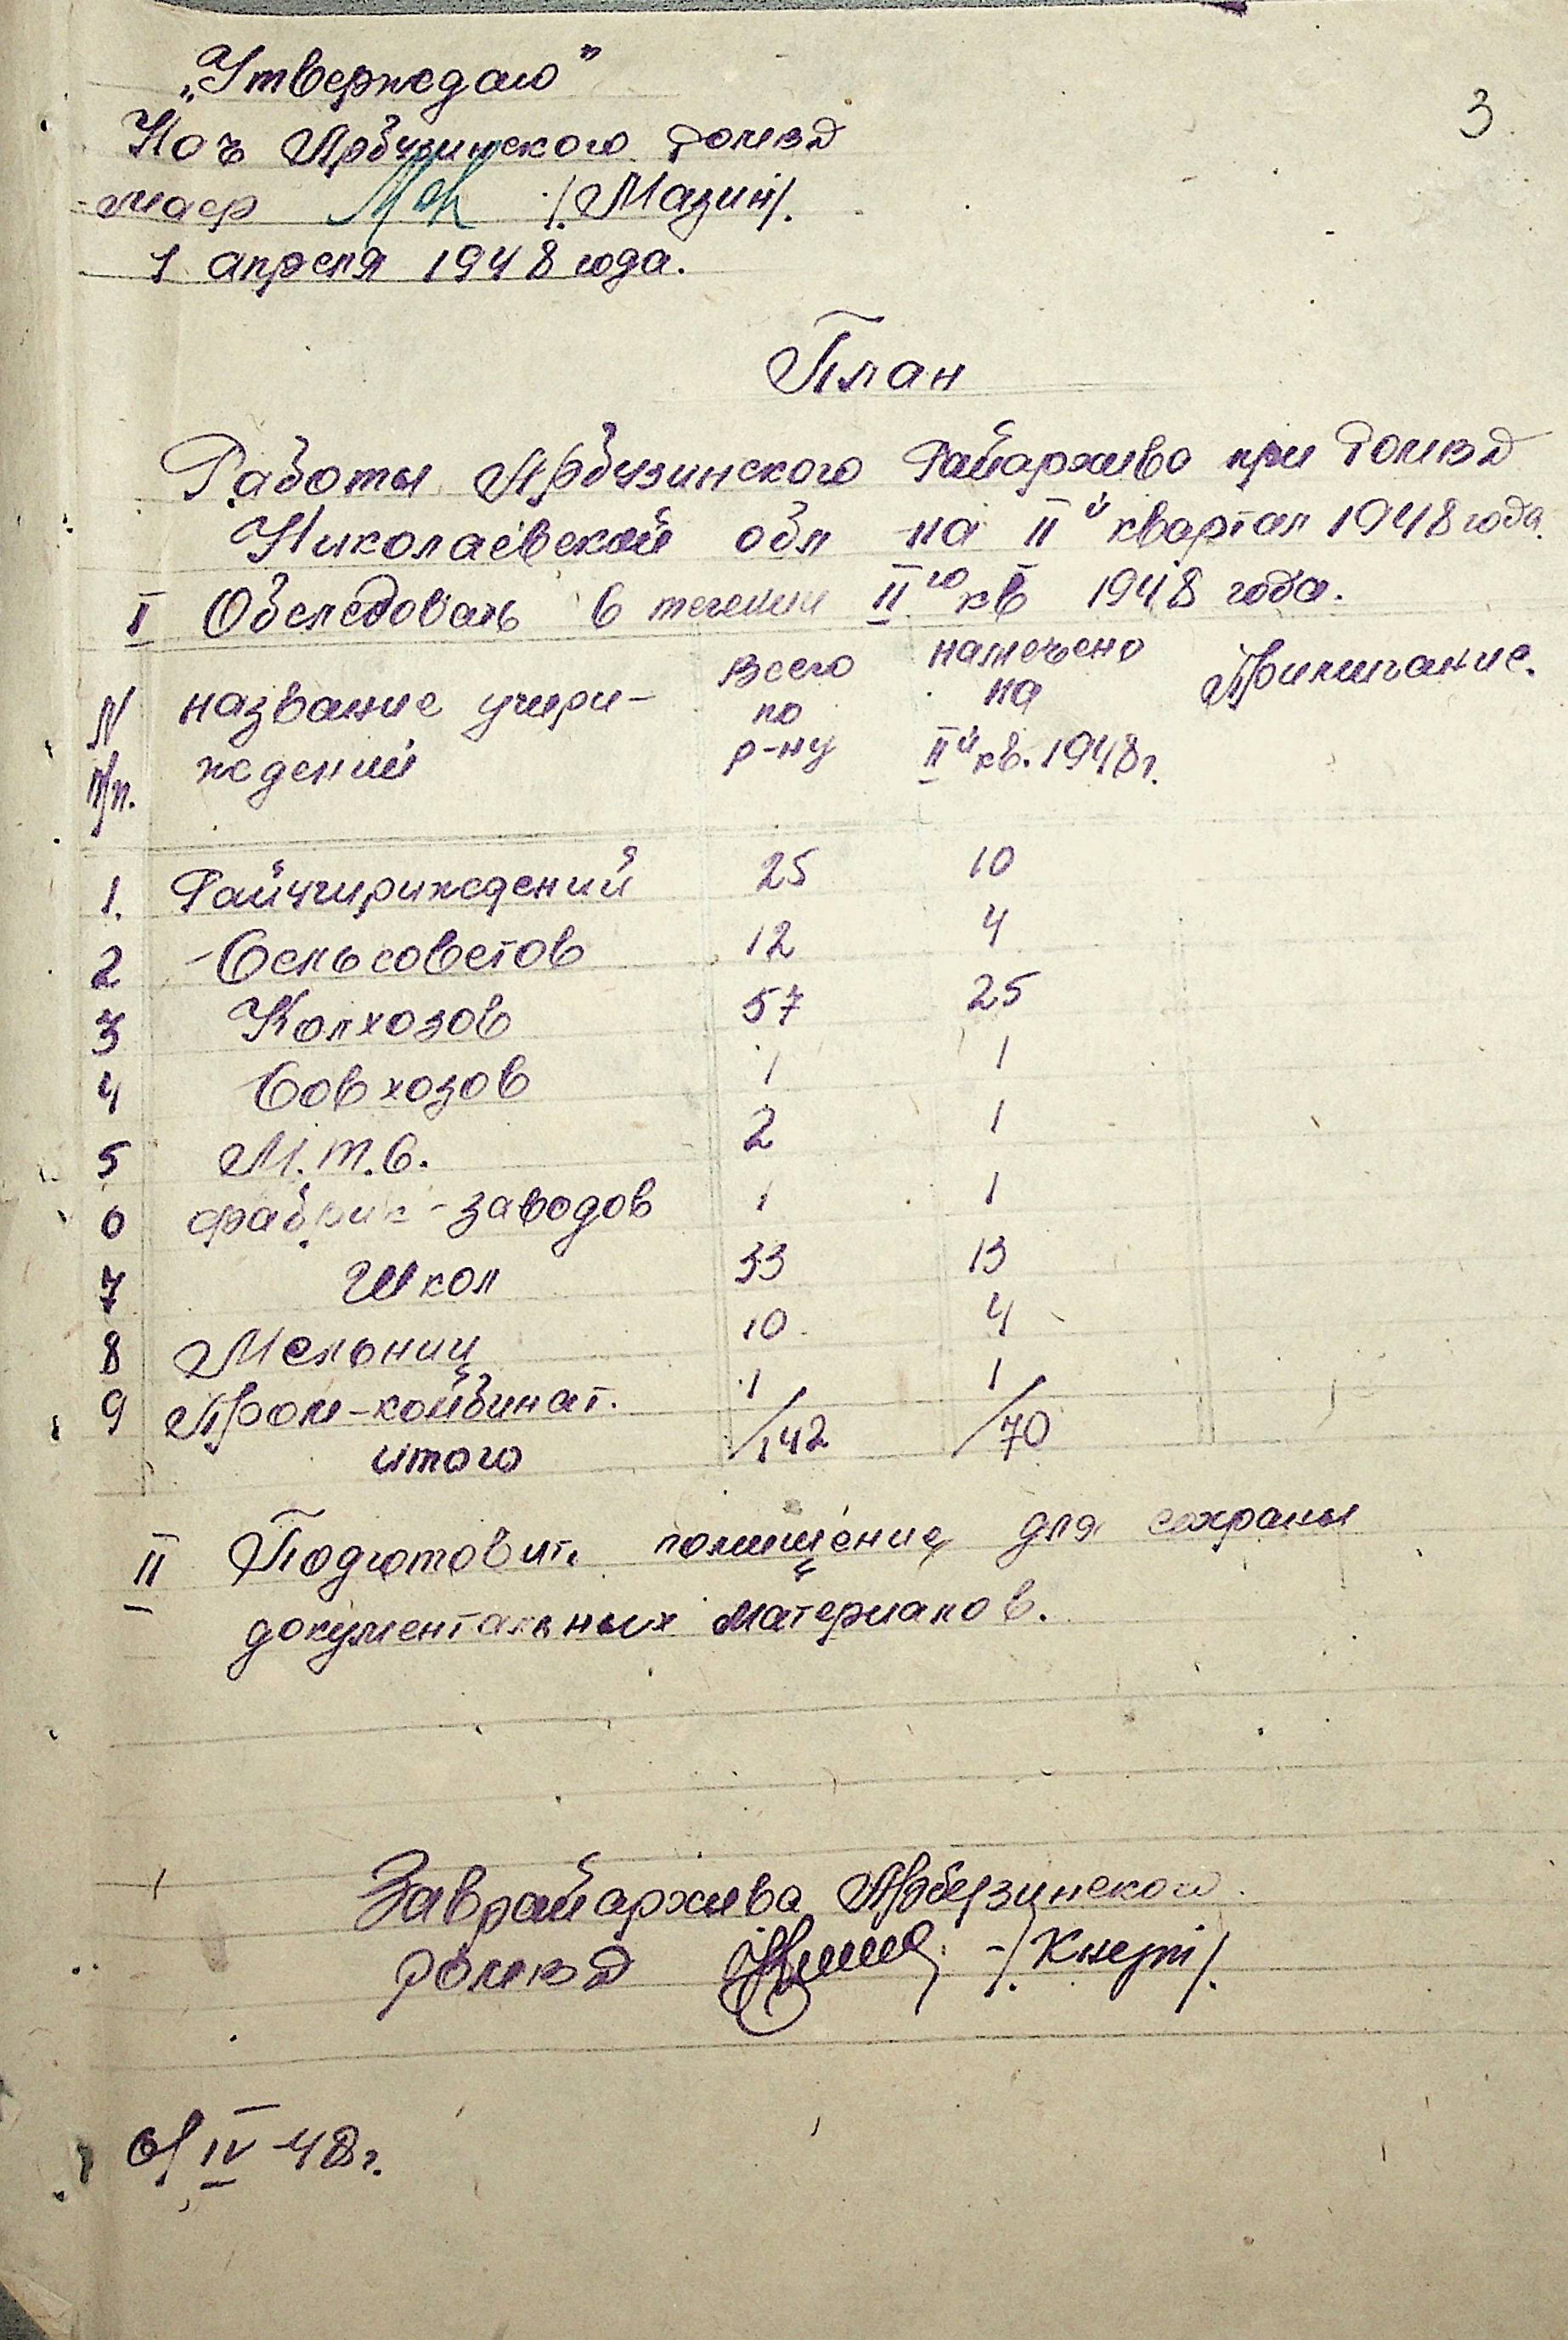 3
„Утверждаю"
Нач Арбузинского РОМВД
маер /.Мазин/.
1 апреля 1948 года.
План
Работы Арбузинского Райархива при РОМВД
Николаевской обл на II й квартал 1948 года.
I Обследовать в течении II го кв 1948 года.
N п/п. название учири- всего по р-ну намечено на Примичание.
ждений II й кв. 1948 г.
1. Райучириждений 25 10
2 Сельсоветов 12 4
3 Колхозов 57 25
4 Совхозов 1 1
5 М.Т.С. 2 1
6 фабрик-заводов 1 1
7 Школ 33 13
8 Мельниц 10 4
9 Пром-комбинат. 1 1
итого 142 70
II Подготовить помищение для сохраны
документальных материалов.
Заврайархива Арбузинского
РОМВД -/.Кнерт/.
IV 48 г.